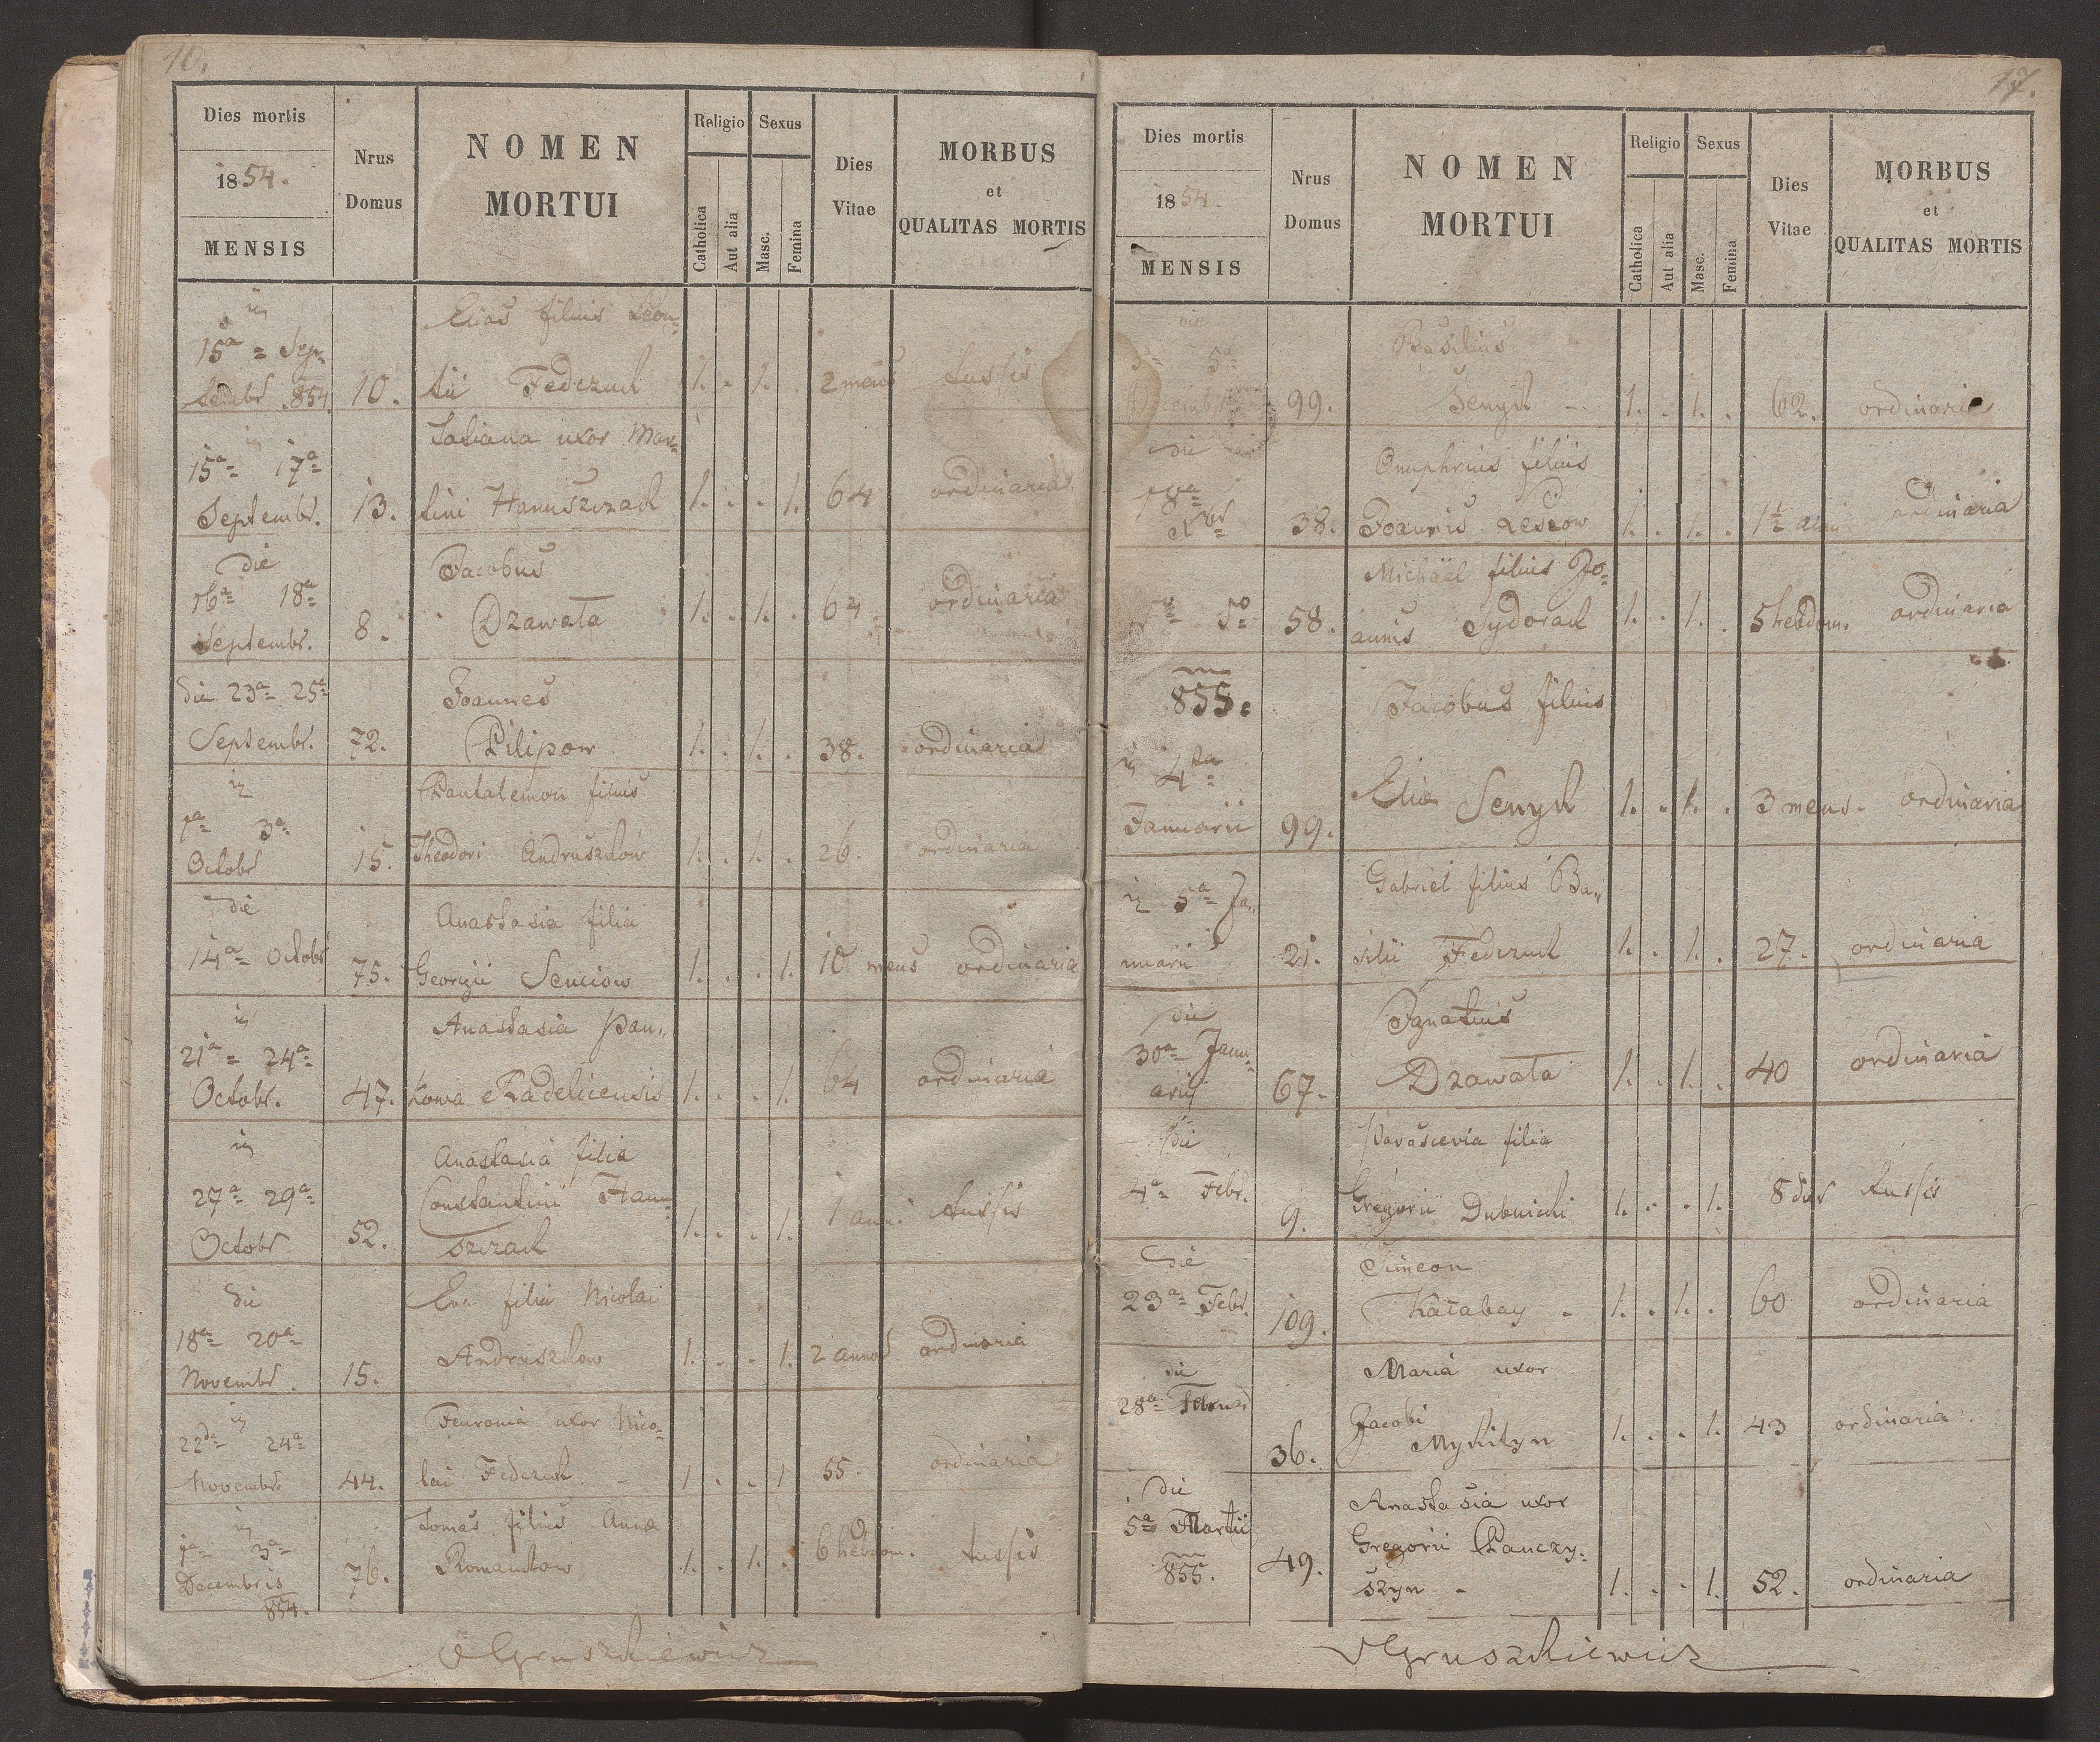 16.
Dies mortis
1854.
MENSIS
Nrus
Domus
NOMEN
MORTUI
Religio
Catholica
Aut alia
Sexus
Masc.
Femina
Dies
Vitae
MORBUS
et
QUALITAS MORTIS
15ª = Sep=
tembr 854.
10.
Elias filius Leon=
tii Fedczuk
1. . 1. .
2 mens
tussis
15ª= 17ª=
Septembr.
13.
Tatiana uxor Mar=
tini Hanuszczak
1. . . 1.
64
ordinaria
die
16ª= 18ª=
Septembr.
8.
Jacobus
Dzawała
1. . 1. .
64
ordinaria
die 23ª= 25ª=
Septembr.
72.
Joannes
Pilipow
1. . 1. .
38.
ordinaria
1ª 3ª=
Octobr
15.
Pantalemon filius
Theodori Andruszków
1. . 1. .
26.
ordinaria
die
14ª= Octobr
75.
Anastasia filia
Georgii Senciow
1. . . 1.
10 mens
ordinaria
21ª= 24ª=
Octobr.
47.
Anastasia Pan„
kowa Radeliciensis
1. . . 1.
64
ordinaria
27ª= 29ª=
Octobr
52.
Anastasia filia
Constantini Hanu=
szczak
1. . . 1.
1 anni
tussis
die
18ª= 20ª=
Novembr.
15.
Eva filia Nicolai
Andruszkow
1. . . 1.
2 annos
ordinaria
22da= 24ª=
Novembr.
44.
Feuronia uxor Nico=
lai Fedczuk -
1 . . 1
55.
ordinaria
1ª= 3ª=
Decembris
854.
76.
Tomas filius Annae
Romankow
1. . 1. .
6 hebdom.
tussis
Gruszkiewicz
17.
Dies mortis
1854.
MENSIS
Nrus
Domus
NOMEN
MORTUI
Religio
Catholica
Aut alia
Sexus
Masc.
Femina
Dies
Vitae
MORBUS
et
QUALITAS MORTIS
die
3ª= 5ª
Decembr
99.
Basilius
Senyk -
1. . 1. .
62.
ordinaria
die
18ª=
Xbr
38.
Onuphrius filius
Joannis Lesiow
1. . 1. .
1½ anni
ordinaria
58.
Michäel filius Jo=
annis Sydorak
1. . 1. .
5 hebdom.
ordinaria
855.
4ta
Januarii
99.
Jacobus filius
Eliae Senyk
1. . 1. .
3 mens.
ordinaria
5ª Ja„
nuarii
21.
Gabriel filius Ba„
silii Fedczuk
1. . 1. .
27.
ordinaria
die
30ª= Janu=
arii
67.
Ignatius
Dzawała
1. . 1. .
40
ordinaria
die
4ª= Febr.
9.
Parascevia filia
Gregorii Dubnicki
1. . . 1.
8 dies
tussis
die
23ª= Febr.
109.
Simeon
Kałabay -
1. . 1. .
60
ordinaria
die
28ª= Februar
36.
Maria uxor
Jacobi
Mykityn
1. . . 1.
43
ordinaria
die
5ª= Martii
855.
49.
Anastasia uxor
Gregorii Panczy=
szyn -
1. . . 1.
52.
ordinaria
Gruszkiewicz